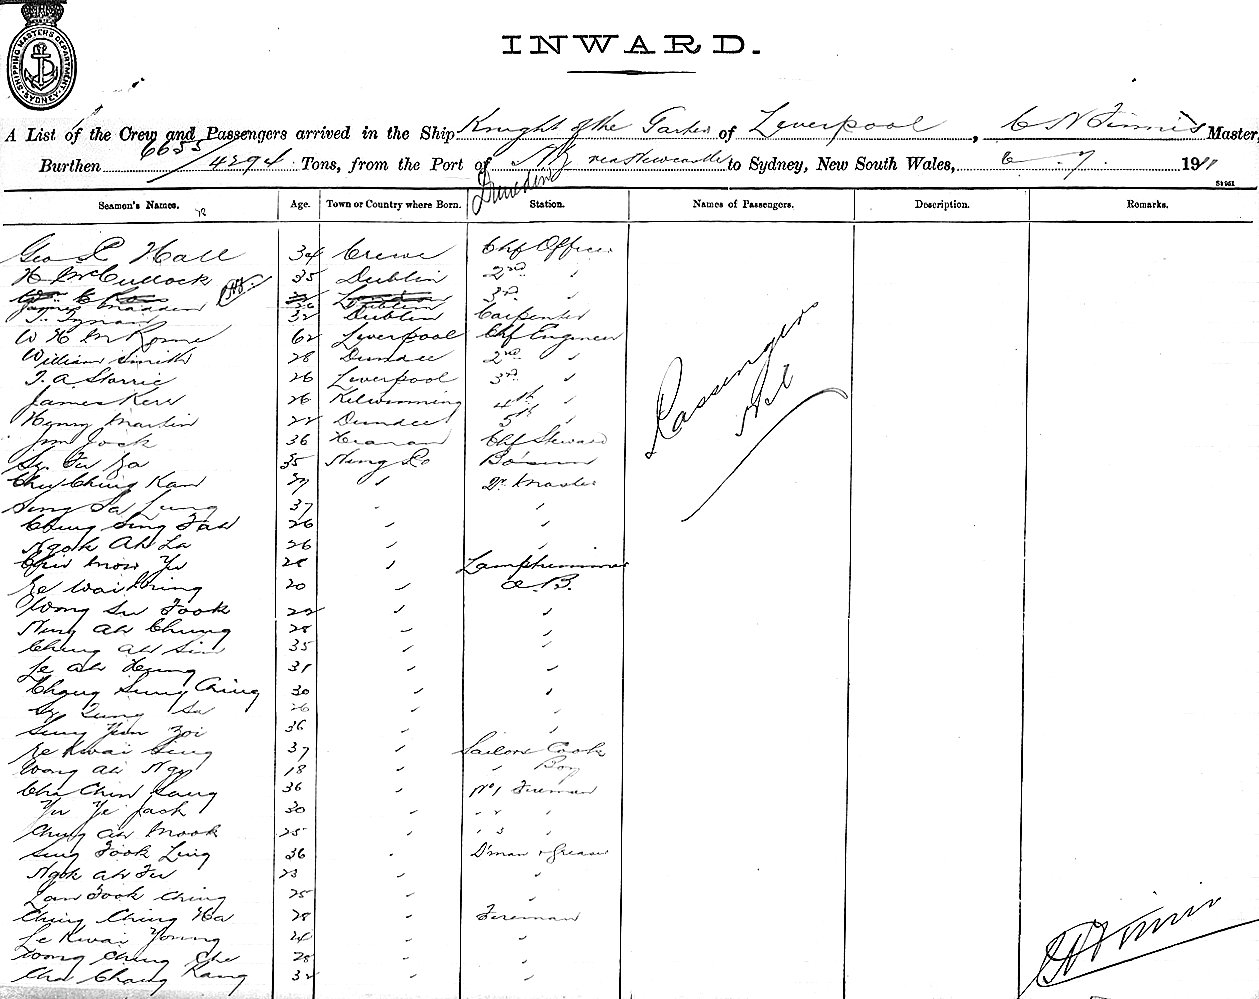 SHIPPING MASTERS DEPARTMENT SYDNEY
INWARD.
A List of the Crew and Passengers arrived in the Ship Knight of the Garter of Liverpool, C N Finnis Master,
Burthen 6655/4294 Tons, from the Port of N.Y. via Newcastle to Sydney, New South Wales, 6 . 7 . 1911
Dunedin
Seamen's Names. Age. Town or Country where Born. Station. Names of Passengers. Description. Remarks.
Geo P Hall 34 Crewe Chf Officer
H McCullock 35 Dublin 2nd "
James Madden 36 Dublin 3rd "
T. Tynan 32 Dublin Carpenter
W H M Rome 62 Liverpool Chf Engineer
William Smith 28 Dundee 2nd "
T. A Storrie 26 Liverpool 3rd "
James Kerr 26 Kilwinning 4th "
Henry Martin 22 Dundee 5th "
Jim Jock 36 Hainan Chf Steward
Sz Fu Za 35 Ning Po Bo'sun
Chu Ching Kan 39 " Qr Master
Sung Sa Lung 37 " "
Chung Sing Fah 26 " "
Ngok Ah La 26 " "
Chu Mow Yu 28 " Lamptrimmer
Ze Wai Wing 20 " A.B.
Wong Su Fook 22 " "
Ning Ah Chung 28 " "
Chung Ah Sin 35 " "
Le Ah Kung 31 " "
Chang Sung Ching 30 " "
Sz Zung Sa 26 " "
Sung Yun Zoi 36 " "
Ze Kwai Sung 37 " Sailors Cook
Wong Ah Ngy 18 " " Boy
Cha Chin Lang 36 " No 1 Fireman
Yu Ye Jack 30 " " 2 "
Chung Ah Mook 25 " " 3 "
Sung Fook Ling 36 " D'man & Greaser
Ngok Ah Fu 23 " "
Lan Fook Ching 25 " "
Ching Ching Ha 28 " Fireman
Le Kwai Young 24 " "
Wong Ching Che 28 " "
Cha Chang Kang 32 " "
Passengers
Nil
C N Finnis